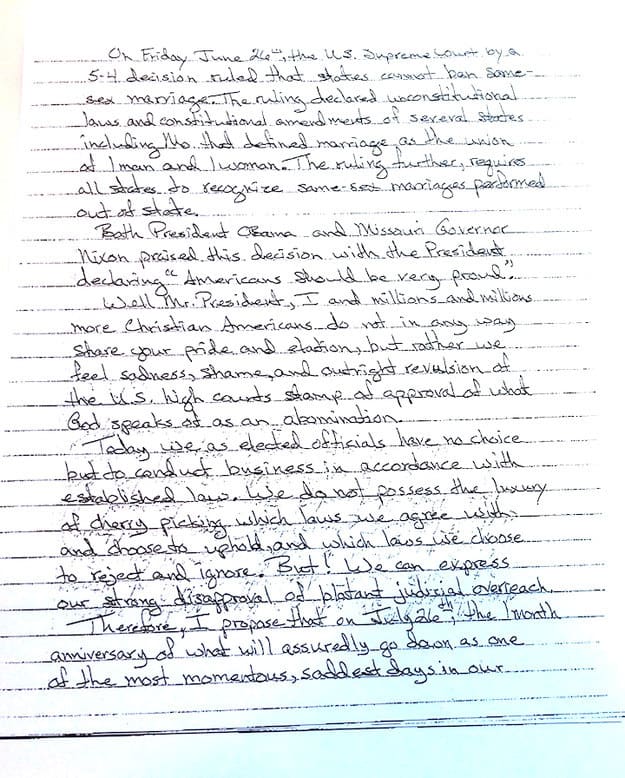 On Friday June 26th, the U.S. Supreme Court by a
5-4 decision ruled that states cannot ban same-
sex marriage. The ruling declared unconstitutional
laws and constitutional amendments of several states
including Mo. that defined marriage as the union
of 1 man and 1 woman. The ruling further, requires
all states to recognize same-sex marriages performed
out of state.
Both President Obama and Missouri Governor
Nixon praised this decision with the President
declaring "Americans should be very proud".
Well Mr. President, I and millions and millions
more Christian Americans do not in any way
share your pride and elation, but rather we
feel sadness, shame, and outright revulsion at
the U.S. high courts stamp of approval of what
God speaks of as an abomination.
Today we, as elected officials have no choice
but to conduct business in accordance with
established law. We do not possess the luxury
of cherry picking which laws we agree with
and choose to uphold, and which laws we choose
to reject and ignore. But! We can express
our strong disapproval of blatant judicial overreach.
Therefore, I propose that on July 26th, the 1 month
anniversary of what will assuredly go down as one
of the most momentous, saddest days in our